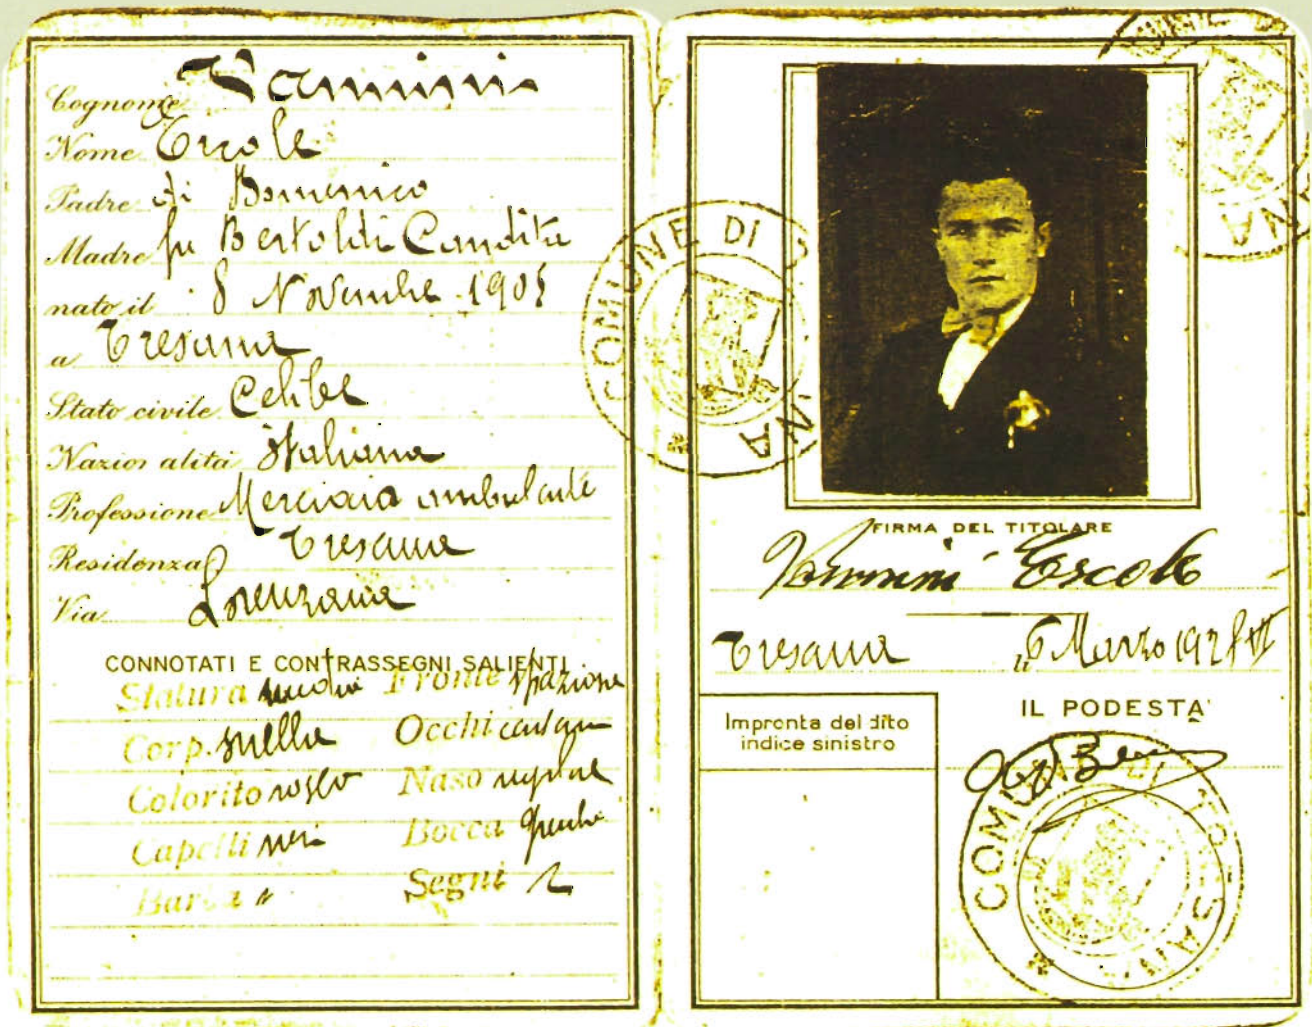 Cognome Vannini
Nome Ercole
Padre di Domenico
Madre fu Bertoldi Candita
nato il 8 Novembre 1905
a Tresana
Stato civile Celibe
Nazionalità Italiana
Professione Merciaio ambulante
Residenza Tresana
Via Lorenzana
CONNOTATI E CONTRASSEGNI SALIENTI
Statura media Fronte spaziosa
Corp. snella Occhi castani
Colorito roseo Naso regolare
Capelli neri Bocca
Barba Segni
COMUNE DI
FIRMA DEL TITOLARE
Vannini Ercole
Tresana 6 Marzo 1928 VI
IL PODESTA'
Impronta del dito
indice sinistro
COMUNE DI